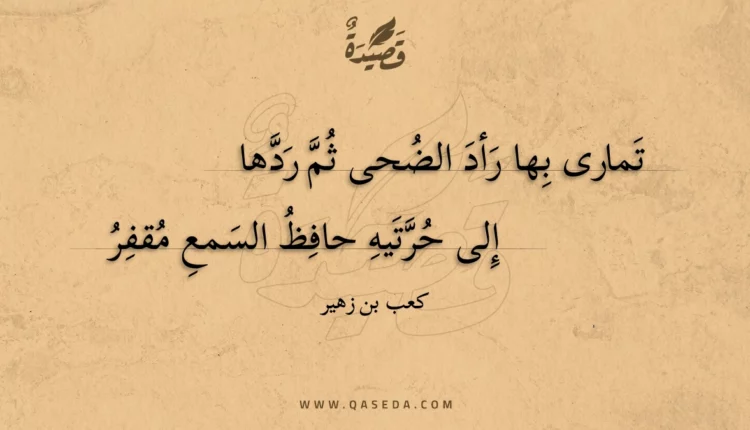 قَصِيْدَةٌ
تَمارى بِها رَأدَ الضُحى ثُمَّ رَدَّها
إِلى حُرَّتَيهِ حافِظُ السَمعِ مُقفِرُ
كعب بن زهير
WWW.QASEDA.COM